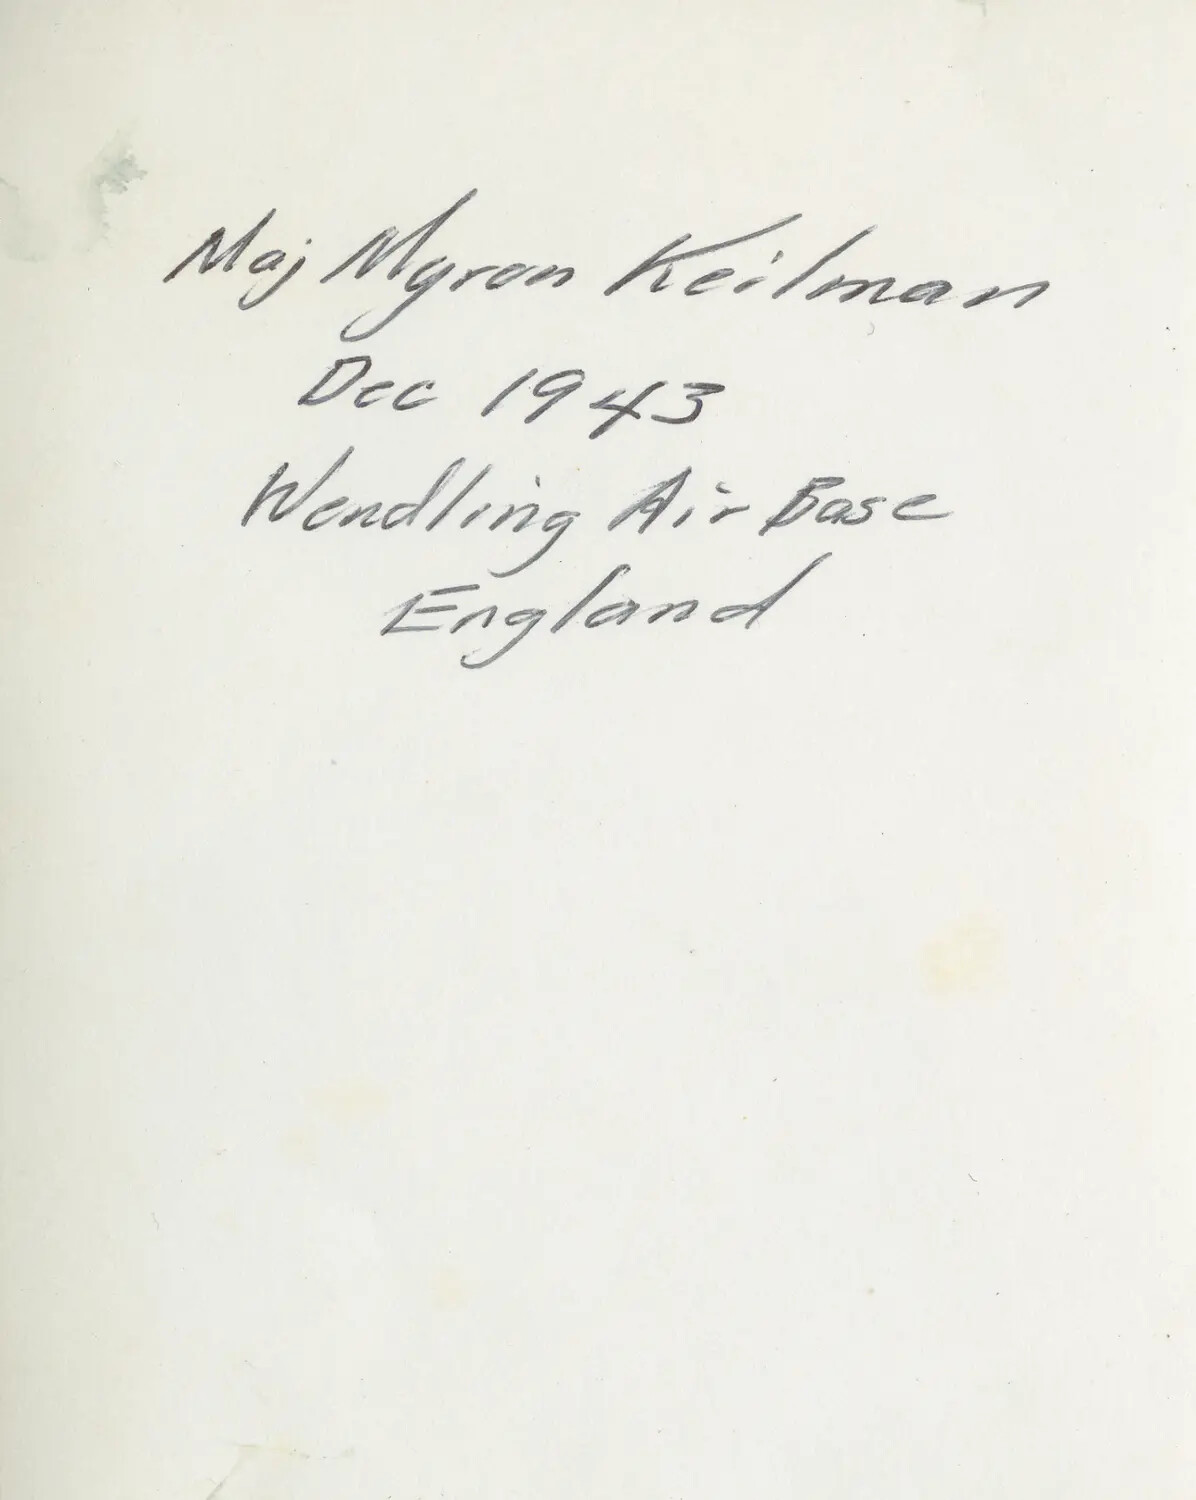 Maj Myron Keilman
Dec 1943
Wendling Air Base
England